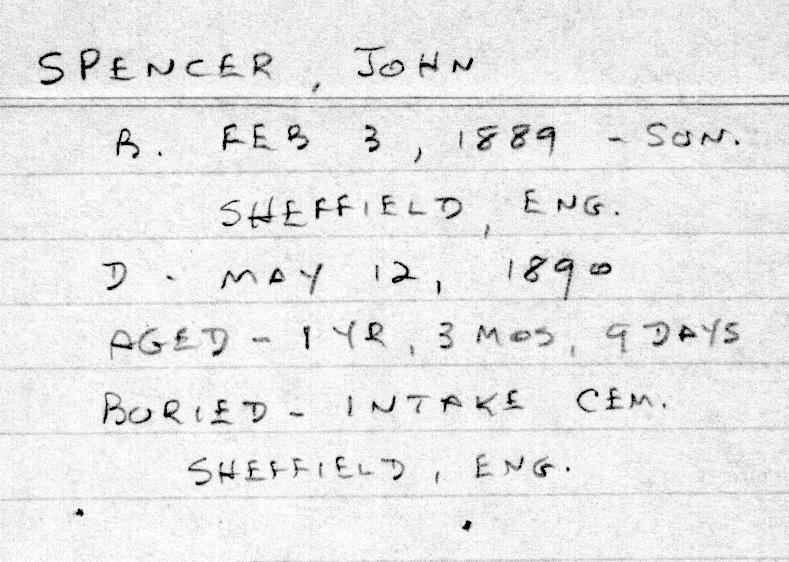 SPENCER, JOHN
B. FEB 3, 1889 - SON.
SHEFFIELD, ENG.
D. MAY 12, 1890
AGED - 1 YR, 3 MOS, 9 DAYS
BURIED - INTAKE CEM.
SHEFFIELD, ENG.